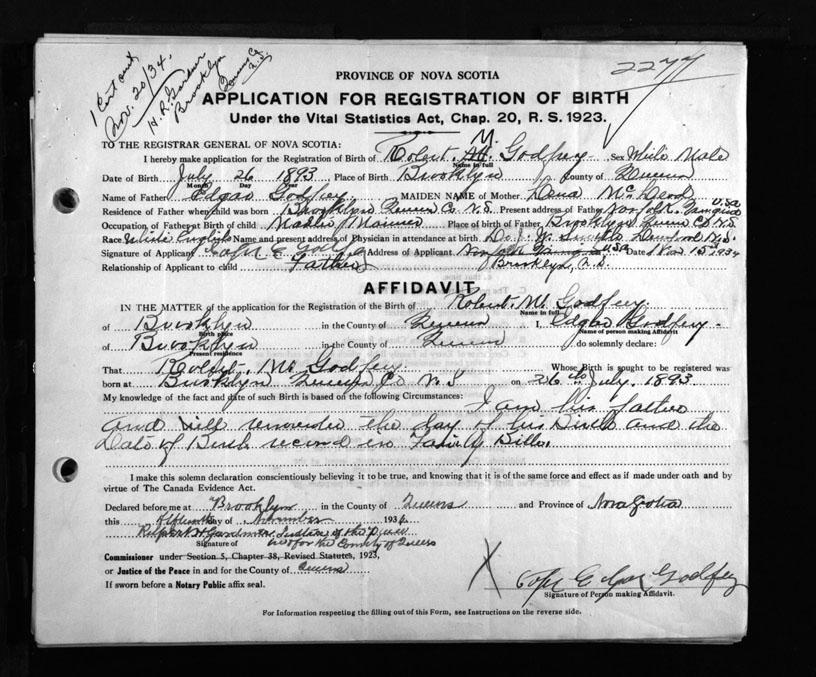 1 Cert out
Nov. 20/34.
H. R. Gardner
Brooklyn
Queens Co.
N.S.
2277
PROVINCE OF NOVA SCOTIA
APPLICATION FOR REGISTRATION OF BIRTH
Under the Vital Statistics Act, Chap. 20, R. S. 1923.
TO THE REGISTRAR GENERAL OF NOVA SCOTIA:
I hereby make application for the Registration of Birth of Robert. M. Godfrey Sex White Male
Name in full
Date of Birth July 26 1893 Place of Birth Brooklyn County of Queens
Month Day Year
Name of Father Edgar Godfrey MAIDEN NAME of Mother Lena McLeod
Residence of Father when child was born Brooklyn Queens Co N.S. Present address of Father Norfolk. Virginia USA
Occupation of Father at Birth of child Master Mariner Place of birth of Father Brooklyn Queens Co N.S.
Race White English Name and present address of Physician in attendance at birth Dr. J. W. Smith Liverpool N.S.
Signature of Applicant Capt E Godfrey Address of Applicant Norfolk Virginia USA Date Nov 15th 1934
Relationship of Applicant to child Father Brooklyn, N.S.
AFFIDAVIT
IN THE MATTER of the application for the Registration of the Birth of Robert. M. Godfrey.
Name in full
of Brooklyn in the County of Queens I, Edgar Godfrey
Birth place Name of person making Affidavit
of Brooklyn in the County of Queens do solemnly declare:
Present residence
That Robert. M. Godfrey. Whose Birth is sought to be registered was
born at Brooklyn Queens Co N.S on 26th July. 1893
My knowledge of the fact and date of such Birth is based on the following Circumstances: I am his father
and will remember the day of his Birth and the
Date of Birth record in Family Bible.
I make this solemn declaration conscientiously believing it to be true, and knowing that it is of the same force and effect as if made under oath and by
virtue of The Canada Evidence Act.
Declared before me at Brooklyn in the County of Queens and Province of Nova Scotia
this fifteenth day of November 1934
Gardner Justice of the Peace
Signature of in & for the County of Queens
Commissioner under Section 5, Chapter 38, Revised Statutes, 1923,
or Justice of the Peace in and for the County of Queens
If sworn before a Notary Public affix seal.
X Capt Edgar Godfrey
Signature of Person making Affidavit.
For Information respecting the filling out of this Form, see Instructions on the reverse side.